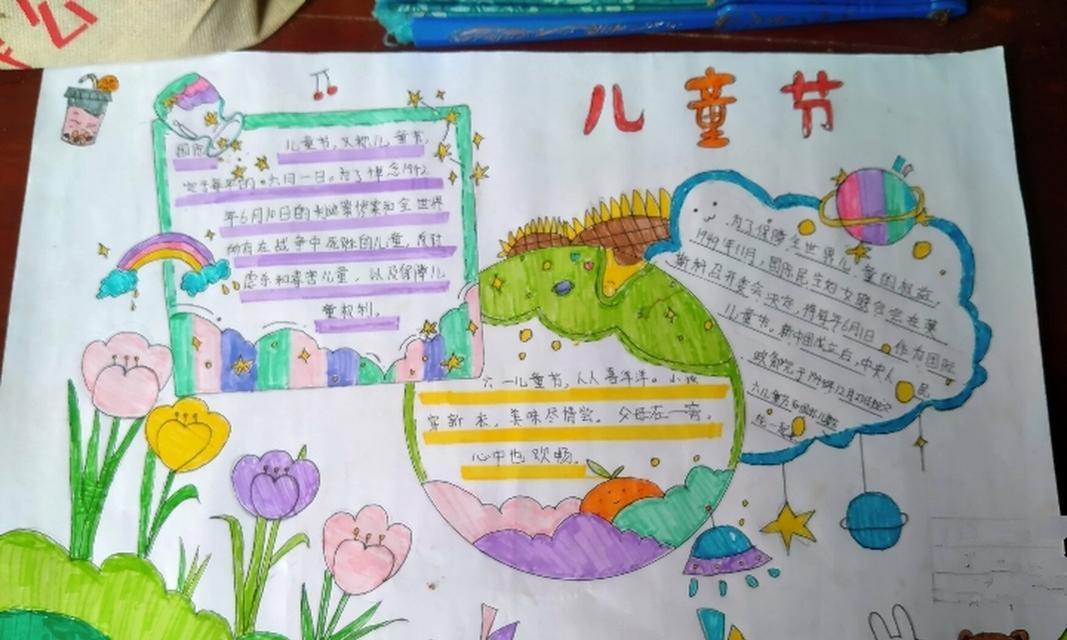 儿童节
国际 儿童节，又称儿童节，
定于每年的六月一日。为了悼念1942
年6月10日的利迪策惨案和全世界
所有在战争中死难的儿童，反对
虐杀和毒害儿童，以及保障儿
童权利。
六一儿童节，人人喜洋洋。小孩
穿新衣，美味尽情尝。父母在一旁，
心中也欢畅。
为了保障全世界儿童的权益，
1949年11月，国际民主妇女联合会在莫
斯科召开委会决定，将每年6月1日作为国际
儿童节。新中国成立后，中央人民
政府 于 年12月23日
六儿童节 国际儿童节
统一起